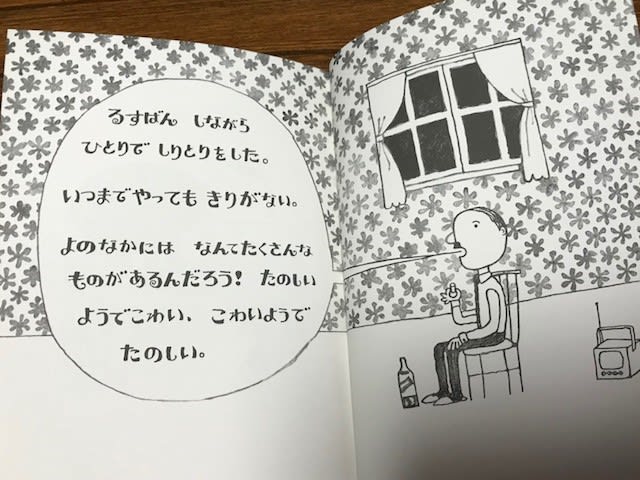 るすばん しながら
ひとりで しりとりをした。
いつまでやっても きりがない。
よのなかには なんてたくさんな
ものがあるんだろう! たのしい
ようでこわい、こわいようで
たのしい。